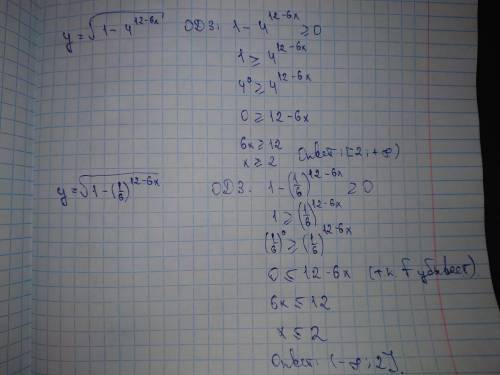 y = √(1 - 4^(12-6x)) ОДЗ: 1 - 4^(12-6x) ≥ 0
1 ≥ 4^(12-6x)
4^0 ≥ 4^(12-6x)
0 ≥ 12-6x
6x ≥ 12
x ≥ 2 Ответ: [2; +∞)
y = √(1 - (1/6)^(12-6x)) ОДЗ. 1 - (1/6)^(12-6x) ≥ 0
1 ≥ (1/6)^(12-6x)
(1/6)^0 ≥ (1/6)^(12-6x)
0 ≤ 12-6x (т.к. f убывает)
6x ≤ 12
x ≤ 2
Ответ: (-∞; 2].